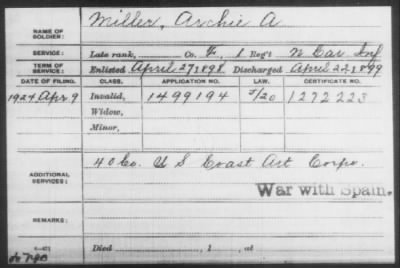 NAME OF SOLDIER: Miller, Archie A.
SERVICE: Late rank, Co. F, 1 Reg't N Car Inf
TERM OF SERVICE: Enlisted April 27 1898 Discharged April 22 1899
DATE OF FILING. CLASS. APPLICATION NO. LAW. CERTIFICATE NO.
1924 Apr 9 Invalid, 1499194 5/20 1272223
Widow,
Minor,
ADDITIONAL SERVICES: 40 Co. U S Coast Art Corps.
War with Spain.
REMARKS:
Died , 1 , at